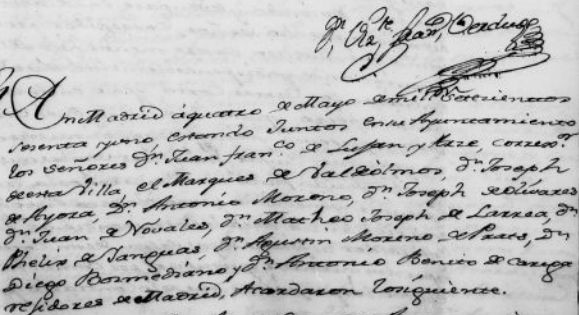 En Madrid á quatro de Mayo de mil setecientos
sesenta y uno estando Juntos en su Ayuntamiento
los señores Dn Juan franco de Lujan y Arze, correxor
de esta Villa, el Marques de Valdolmos, Dn Joseph
de Ayora, Dn Antonio Moreno, Dn Joseph de olivares
Dn Juan de Novales, Dn Matheo Joseph de Larrea, Dn
Phelix de Yanguas, Dn Agustin Moreno de Prats, Dn
Diego Bormediano y Dn Antonio Benito de Cariga
rexidores de Madrid, Acordaron losiguiente.